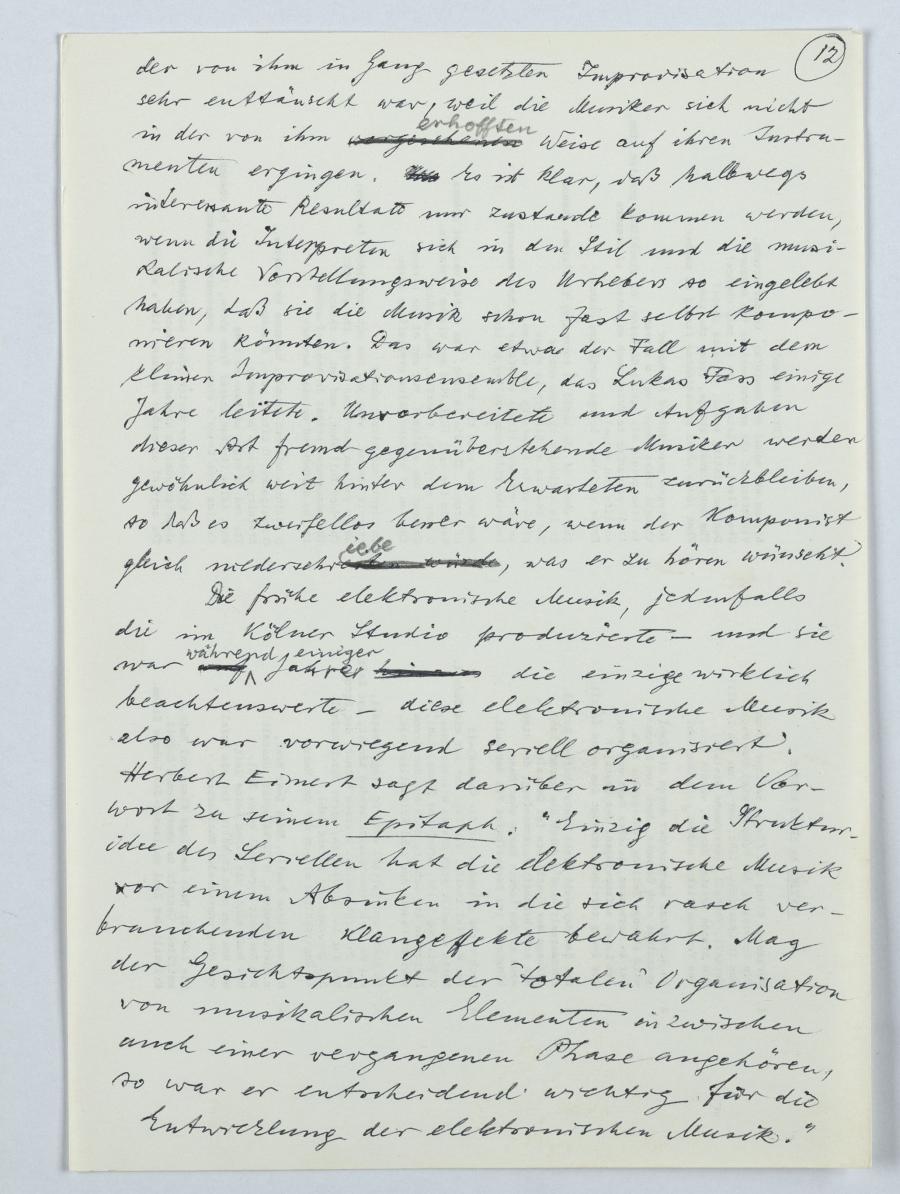 12
der von ihm in Gang gesetzten Improvisation
sehr enttäuscht war, weil die Musiker sich nicht
erhofften
in der von ihm vorgesehenen Weise auf ihren Instru-
menten ergingen. Es ist klar, daß halbwegs
interessante Resultate nur zustande kommen werden,
wenn die Interpreten sich in den Stil und die musi-
kalische Vorstellungsweise des Urhebers so eingelebt
haben, daß sie die Musik schon fast selbst kompo-
nieren könnten. Das war etwa der Fall mit dem
kleinen Improvisationsensemble, das Lukas Foss einige
Jahre leitete. Unvorbereitete und Aufgaben
dieser Art fremd gegenüberstehende Musiker werden
gewöhnlich weit hinter dem Erwarteten zurückbleiben,
so daß es zweifellos besser wäre, wenn der Komponist
iebe
gleich niederschr würde, was er zu hören wünscht.
Die frühe elektronische Musik, jedenfalls
die im Kölner Studio produzierte – und sie
während einiger
war auf Jahre die einzige wirklich
beachtenswerte – diese elektronische Musik
also war vorwiegend seriell organisiert.
Herbert Eimert sagt darüber in dem Vor-
wort zu seinem Epitaph: "Einzig die Struktur-
idee des Seriellen hat die elektronische Musik
vor einem Absinken in die sich rasch ver-
brauchenden Klangeffekte bewahrt. Mag
der Gesichtspunkt der 'totalen' Organisation
von musikalischen Elementen inzwischen
auch einer vergangenen Phase angehören,
so war er entscheidend wichtig für die
Entwicklung der elektronischen Musik."